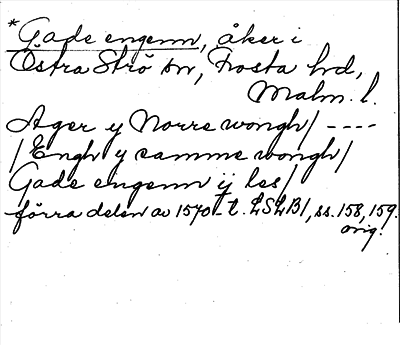 *Gade engenn, åker i
Östra Strö sn, Frosta hd,
Malm. l.
Ager y Norre wongh/ ----
/Engh y samme wongh/
Gade engenn ij les/
förra delen av 1570-t. LSLB1, ss. 158, 159.
orig.